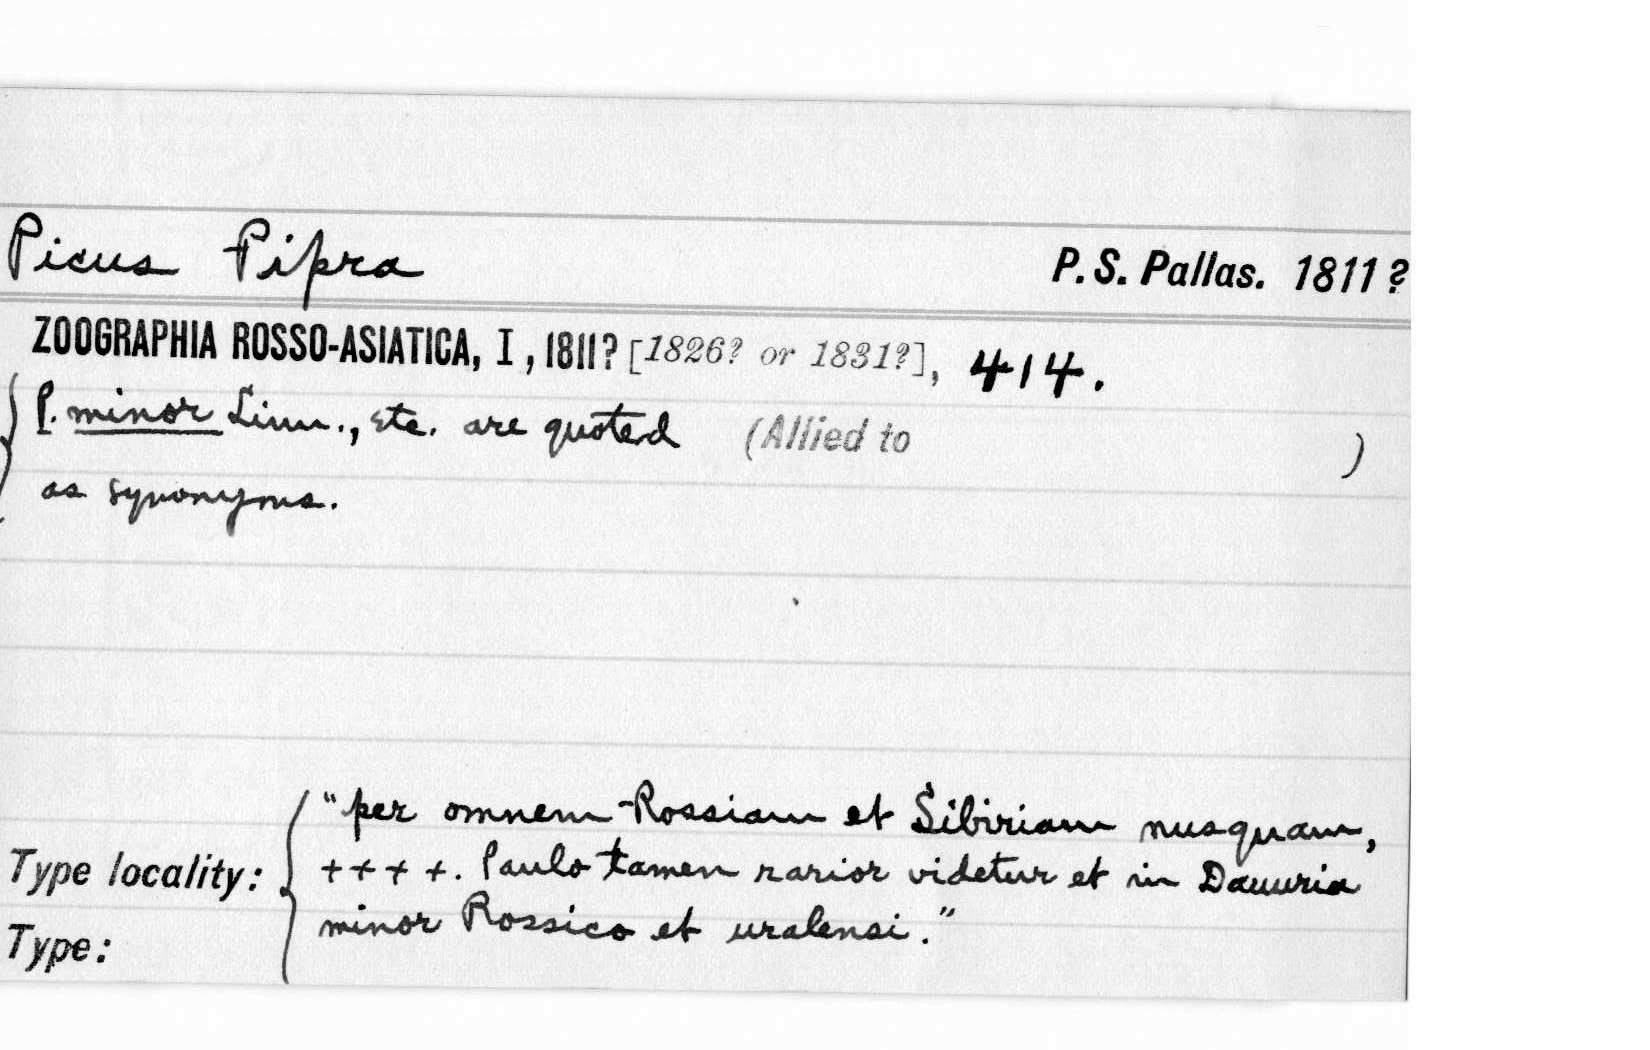 Picus Pipra P. S. Pallas. 1811?
ZOOGRAPHIA ROSSO-ASIATICA, I, 1811? [1826? or 1831?], 414.
P. minor Linn., etc. are quoted (Allied to )
as synonyms.
"per omnem Rossiam et Sibiriam nusquam,
Type locality: ++++. Paulo tamen rarior videtur et in Dauuria
minor Rossico et uralensi."
Type: